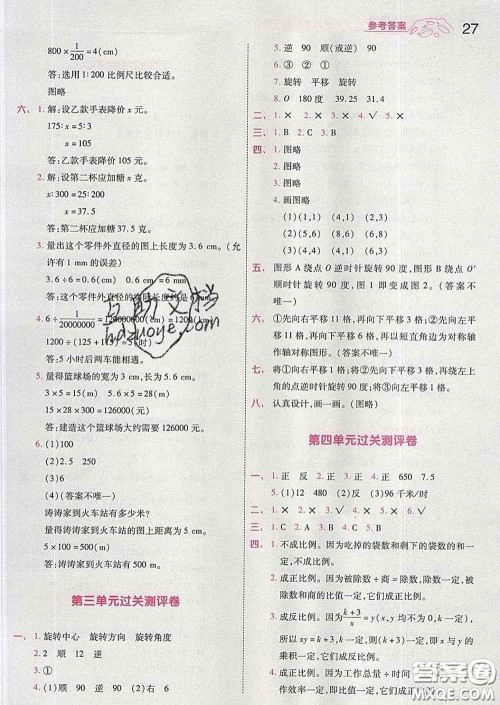 参考答案 27
800×1/200=4(cm)
答:选用1:200比例尺比较合适。
图略
六、1. 解:设乙款手表降价x元。
175:x=5:3
x=105
答:乙款手表降价105元。
2. 解:设第二杯应加糖x克。
x:300=25:200
x=37.5
答:第二杯应加糖37.5克。
3. 量出这个零件外直径的图上长度为3.6 cm。(允
许有1 mm的误差)
3.6÷6=0.6(cm)=6(mm)
答:这个零件外直径的实际长度约是6 mm。
4. 6÷1/20000000=120000000(cm)=1200(km)
1200÷(125+115)=5(时)
答:5小时后两车能相遇。
5. 量得篮球场的宽为3 cm,长为5.6 cm。
3×5=15(m) 5.6×5=28(m)
15×28×300=126000(元)
答:建造这个篮球场大约需要126000元。
6. (1)100
(2)(答案不唯一)
涛涛家到火车站有多少米?
量得涛涛家到火车站的图上距离为5 cm。
5×100=500(m)
涛涛家到火车站有500 m。
第三单元过关测评卷
一、1. 旋转中心 旋转方向 旋转角度
2. 2 顺 12 逆
3. ①
4. (1)顺 90 逆 90 (2)右 6
5. 逆 90 顺(或逆) 90
6. ③ ② ①
7. 旋转 平移 旋转
8. O 180度 39.25 31.4
二、1. × 2. × 3. × 4. × 5. √
三、1. B 2. C 3. B
四、1. 图略
2. 图略
3. 图略
4. 画图略
(1)(1,1) (4,1) (2,3)
(2)(4,6) (4,3) (6,5)
(3)(6,1) (6,4) (8,2)
五、图形A绕点O逆时针旋转90度,图形B绕点O'
顺时针旋转90度,图1即变成图2。(答案不
唯一)
六、①先向右平移11格,再向下平移6格;②先向左平
移11格,再向下平移6格,再以短直角边为对称轴
作轴对称图形。(答案不唯一)
七、将①向右平移1格;将②向左平移1格;将③绕中心
点逆时针旋转90度,再向左平移1格。(答案不唯一)
八、认真设计,画一画。(图略)
第四单元过关测评卷
一、1. 正 反 2. 反 3. 正 4. 正 650 7.5
5. (1)12 48 (2)正 (3)96千米/时
二、1. √ 2. × 3. × 4. × 5. √
三、1. C 2. A 3. B 4. B 5. A
四、1. 不成比例。因为吃掉的袋数和剩下的袋数的和一
定,不是积一定,也不是商一定,所以不成比例。
2. 成正比例。因为被除数÷商=除数,除数一定,
即被除数和商的比值一定,它们成正比例。
3. 成反比例。因为(k+3)/x=y(x,y均不为0),
所以xy=k+3,k一定,则k+3一定,即x与y的
乘积一定,它们成反比例。
4. 成正比例。因为工作总量÷时间
作效率一定,即比值一定,它们成
互助文档
hdzuoye.com
答案圈
MXQE.COM